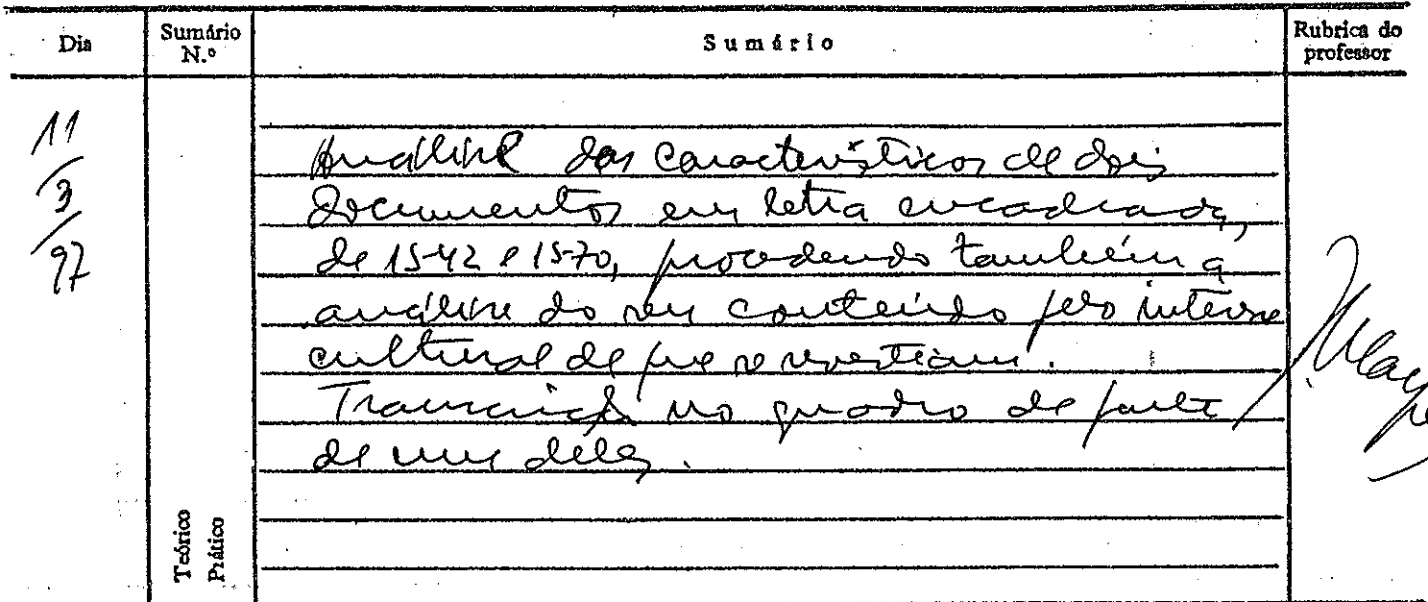 Dia
Sumário N.º
Sumário
Rubrica do professor
11/3/97
Análise das características de dois
documentos em letra encadeada,
de 1542 e 1570, procedendo também à
análise do seu conteúdo pelo interesse
cultural de que se revestiam.
Transcrição no quadro de parte
de um deles.
Teórico
Prático